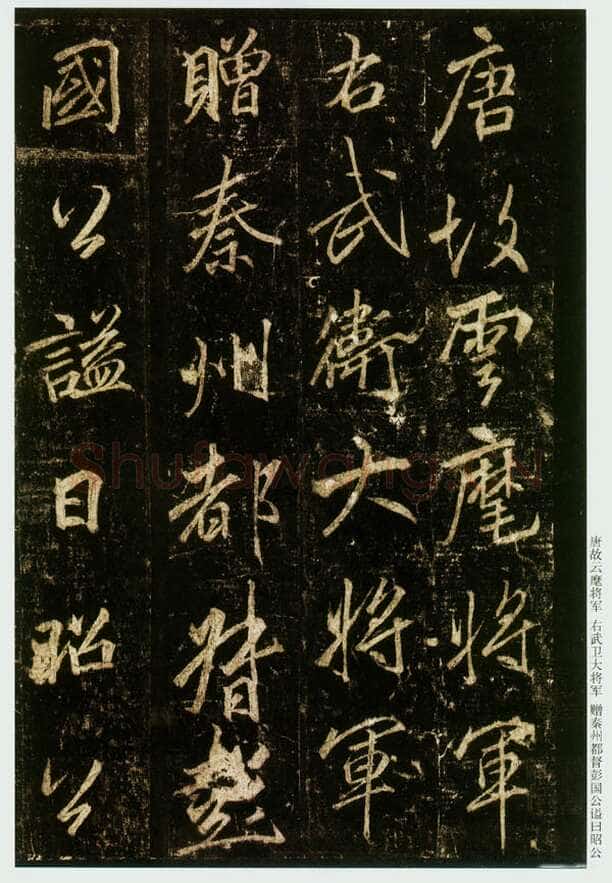 唐故雲麾將軍
右武衛大將軍
贈秦州都督彭
國公諡曰昭公
唐故云麾将军 右武卫大将军 赠秦州都督彭国公谥曰昭公